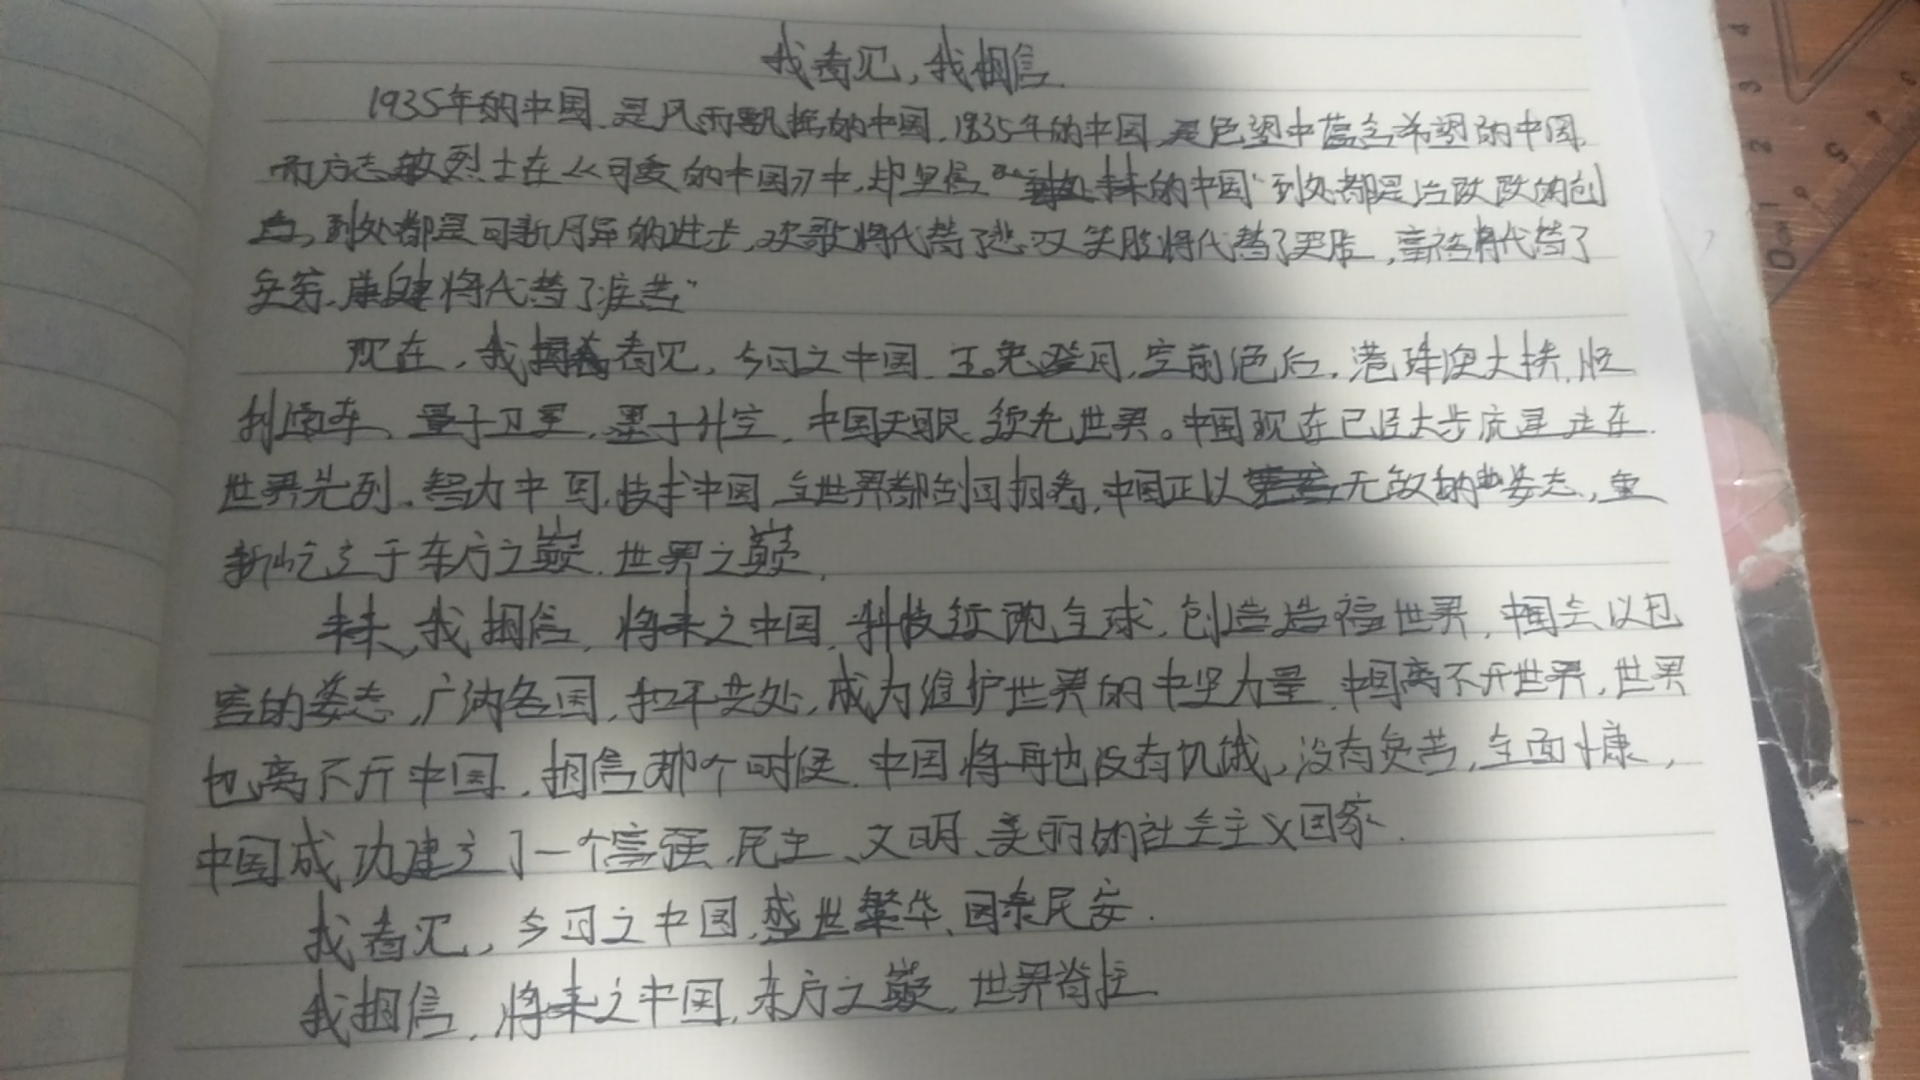 我看见,我相信.
1935年的中国.是风雨飘摇的中国.1935年的中国,是绝望中蕴含希望的中国.
而方志敏烈士在《可爱的中国》中,却坚信"未来的中国"到处都是活跃跃的创
造,到处都是日新月异的进步,欢歌将代替了悲叹笑脸将代替了哭脸,富裕将代替了
贫穷.康健将代替了疾苦"
现在,我看见,今日之中国.玉兔登月,空前绝后.港珠澳大桥.顺
利通车、量子卫星、墨子升空,中国天眼领先世界。中国现在已经大步流星走在
世界先列.智力中国,技术中国.全世界都刮目相看,中国正以无敌的姿态,重
新屹立于东方之巅.世界之巅.
未来,我相信,将来之中国.科技领跑全球,创造造福世界.中国会以包
容的姿态,广纳各国,和平共处,成为维护世界的中坚力量.中国离不开世界,世界
也离不开中国.相信那个时候.中国将再也没有饥饿,没有贫苦,全面小康,
中国成功建立了一个富强、民主、文明、美丽的社会主义国家.
我看见,今日之中国,盛世繁华、国泰民安.
我相信,将来之中国,东方之巅,世界脊柱